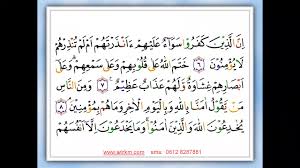 اِنَّ الَّذِيْنَ كَفَرُوْا سَوَاۤءٌ عَلَيْهِمْ ءَاَنْذَرْتَهُمْ اَمْ لَمْ تُنْذِرْهُمْ
لَا يُؤْمِنُوْنَ ٦ خَتَمَ اللّٰهُ عَلٰى قُلُوْبِهِمْ وَعَلٰى سَمْعِهِمْ وَعَلٰٓى
اَبْصَارِهِمْ غِشَاوَةٌ وَّلَهُمْ عَذَابٌ عَظِيْمٌ ٧ وَمِنَ النَّاسِ
مَنْ يَّقُوْلُ اٰمَنَّا بِاللّٰهِ وَبِالْيَوْمِ الْاٰخِرِ وَمَا هُمْ بِمُؤْمِنِيْنَ ٨
يُخٰدِعُوْنَ اللّٰهَ وَالَّذِيْنَ اٰمَنُوْا وَمَا يَخْدَعُوْنَ اِلَّآ اَنْفُسَهُمْ
sms. 0812 8287881